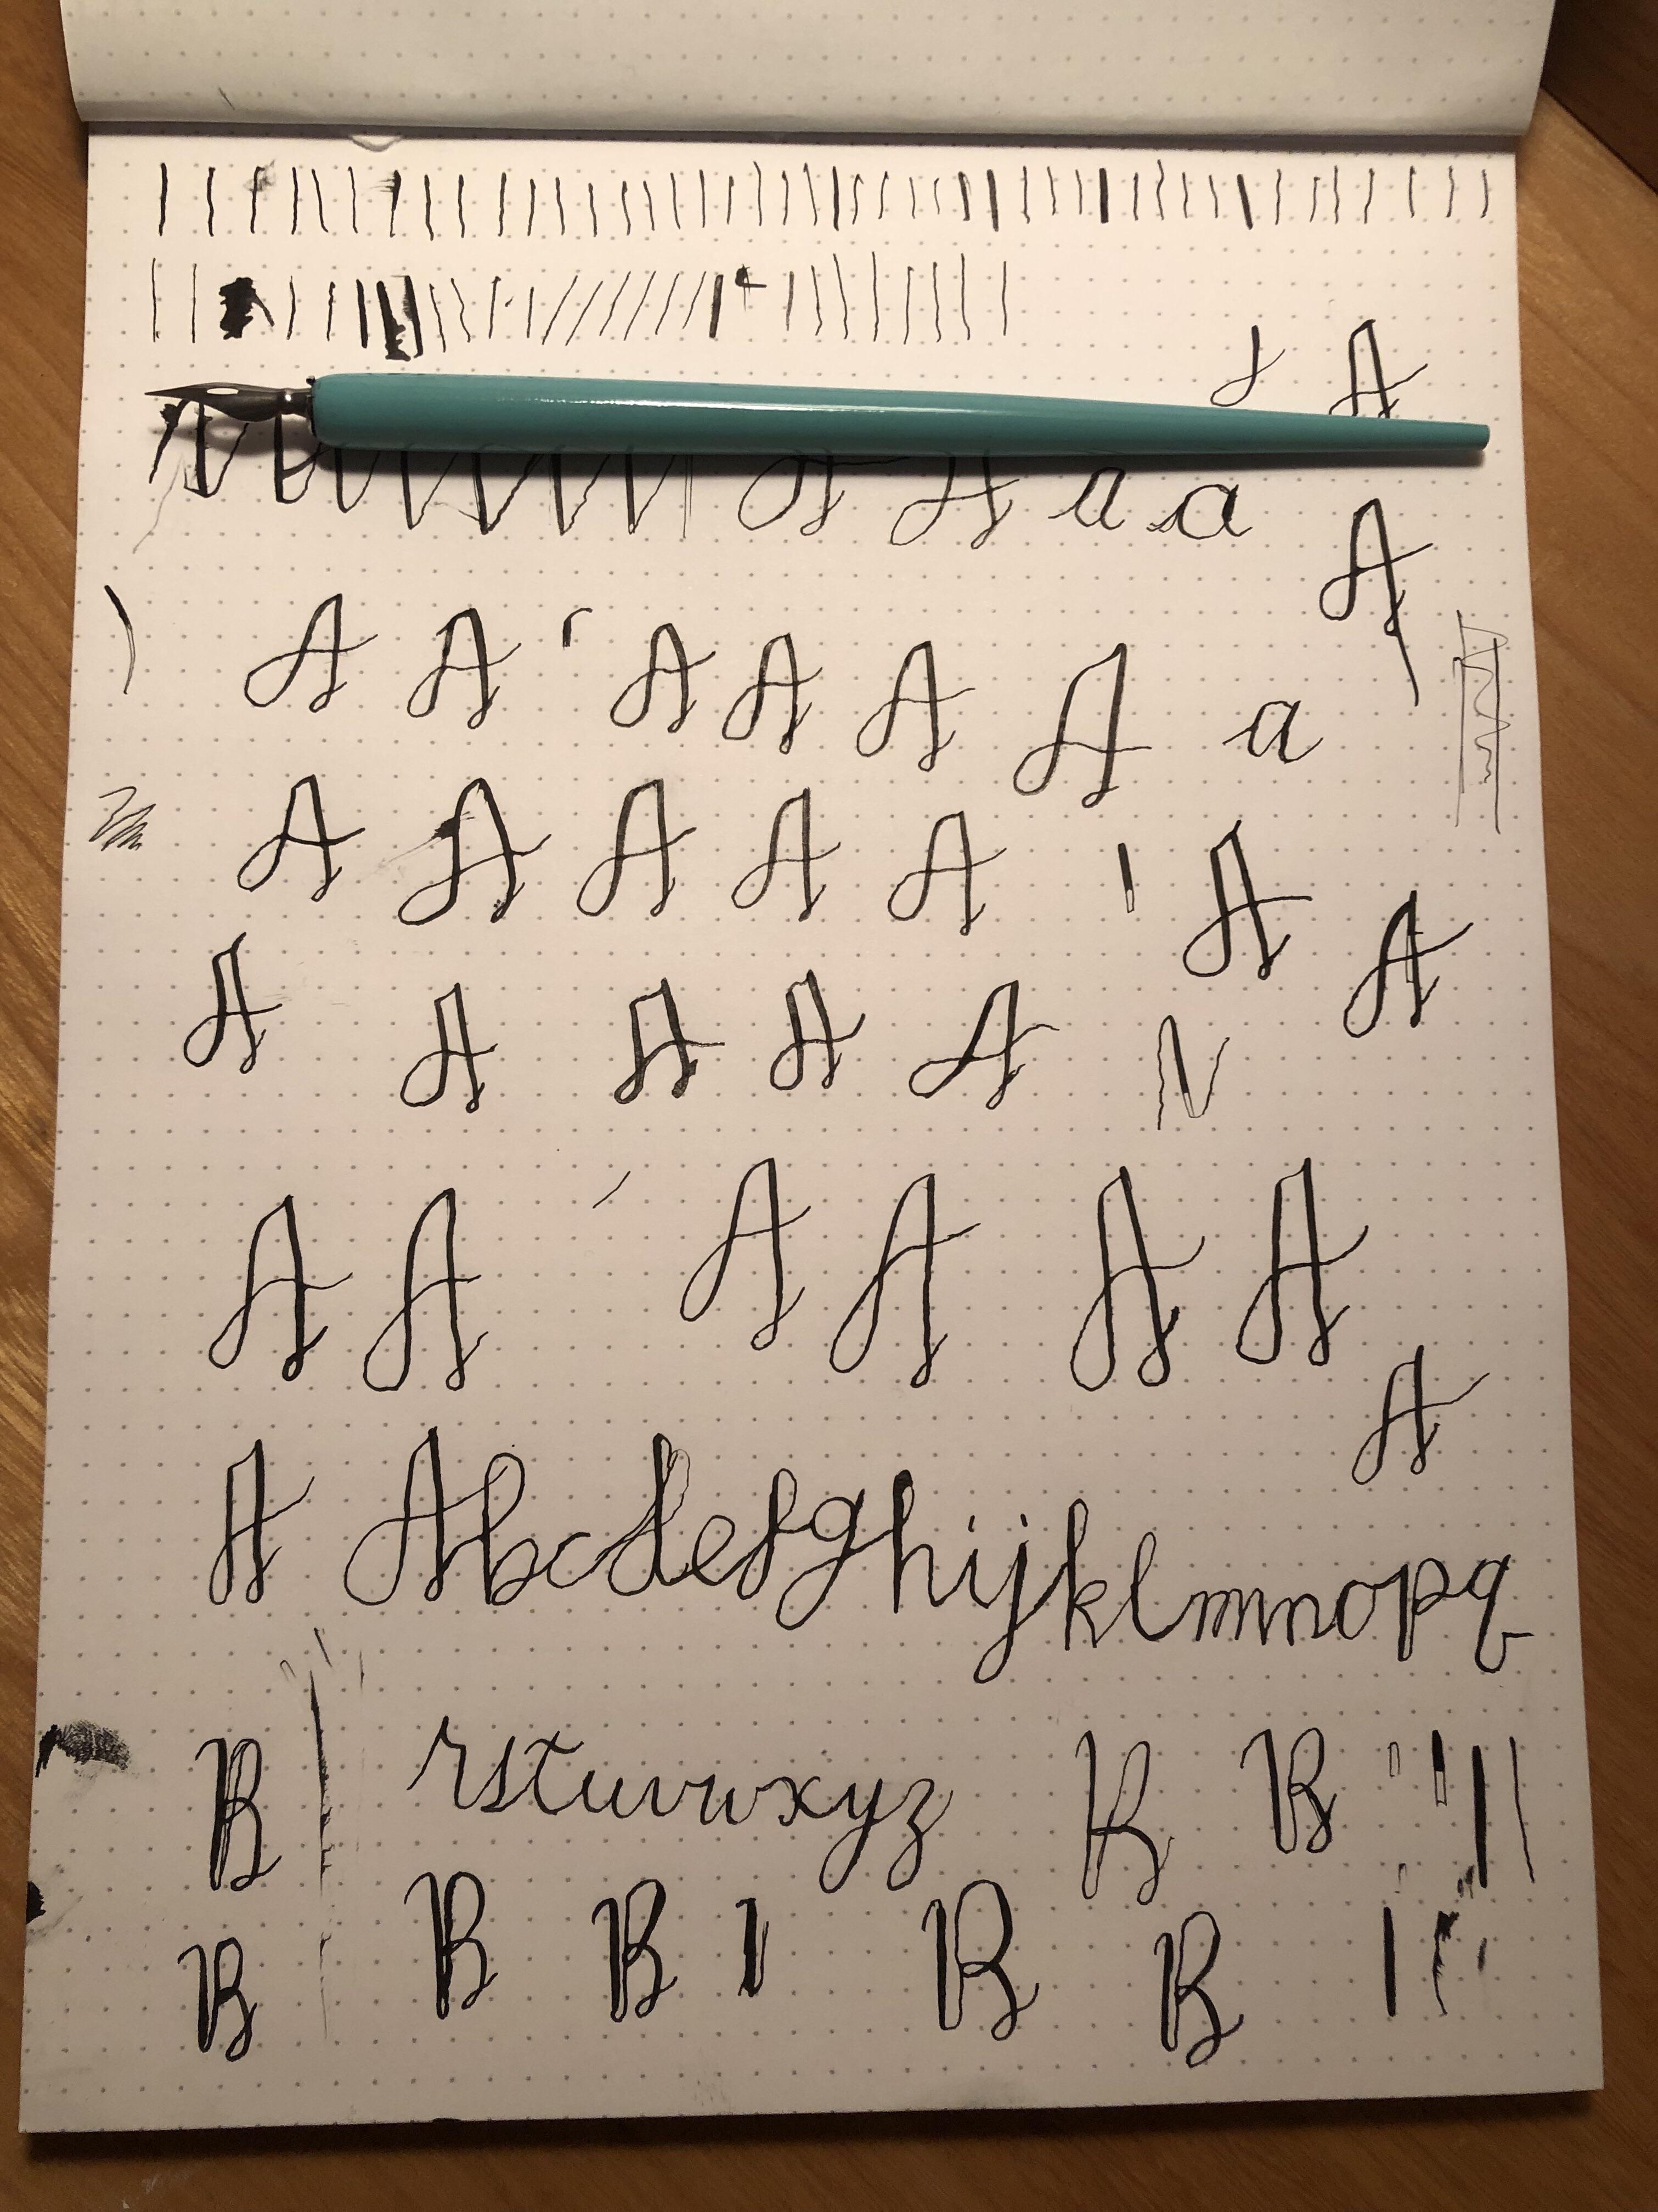 A
A A a a
A
A A A A A A a
A A A A A A
A
A A A A A N
A A A A A A
A
A Abcdefghijklmnopq
B rstuvwxyz B B
B B B B B